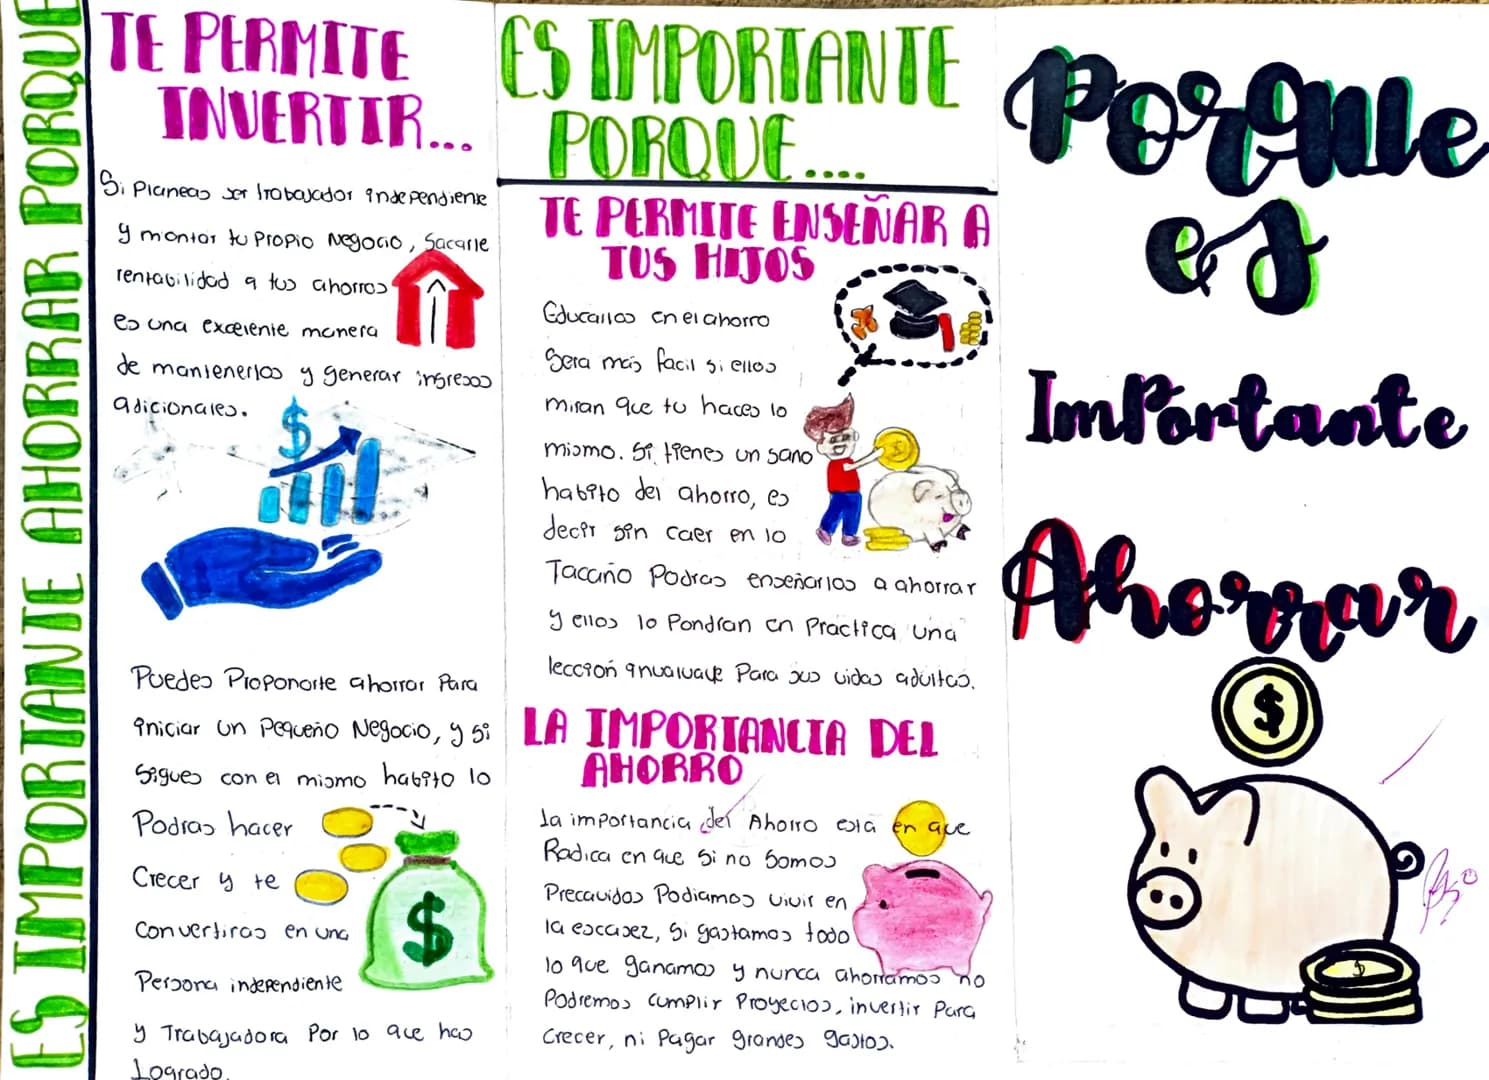 ES IMPORTANTE AHORRAR PORQUE
TE PERMITE
INVERTIR...
Si Planeas ser trabajador independiente
y montar tu Propio Negocio, Sacarle
rentabilidad a tus ahorros
es una excelente manera
de mantenerlos y generar ingresos
adicionales.
$
Puedes Proponerte ahorrar Para
iniciar un Pequeño Negocio, y si
Sigues con el mismo habito lo
Podras hacer
Crecer y te
Convertiras en una
Persona independiente
y Trabajadora Por lo que has
Logrado.
$
ES IMPORTANTE
PORQUE....
TE PERMITE ENSEÑAR A
TUS HIJOS
Educarlos en el ahorro
Sera mas facil si ellos
miran que tu haces lo
mismo. Si tienes un sano
habito del ahorro, es
decir sin caer en lo
Tacaño Podras enseñarlos a ahorrar
y ellos lo Pondran en Practica una
lección Para sus vidas adultas.
LA IMPORTANCIA DEL
AHORRO
La importancia del Ahorro está en que
Radica en que si no Somos
Precavidos Podiamos vivir en
la escasez, Si gastamos todo
lo que ganamos y nunca ahorramos no
Podremos cumplir Proyectos, invertir Para
Crecer, ni Pagar grandes gastos.
Porque
es
Importante
Ahorrar
$
$